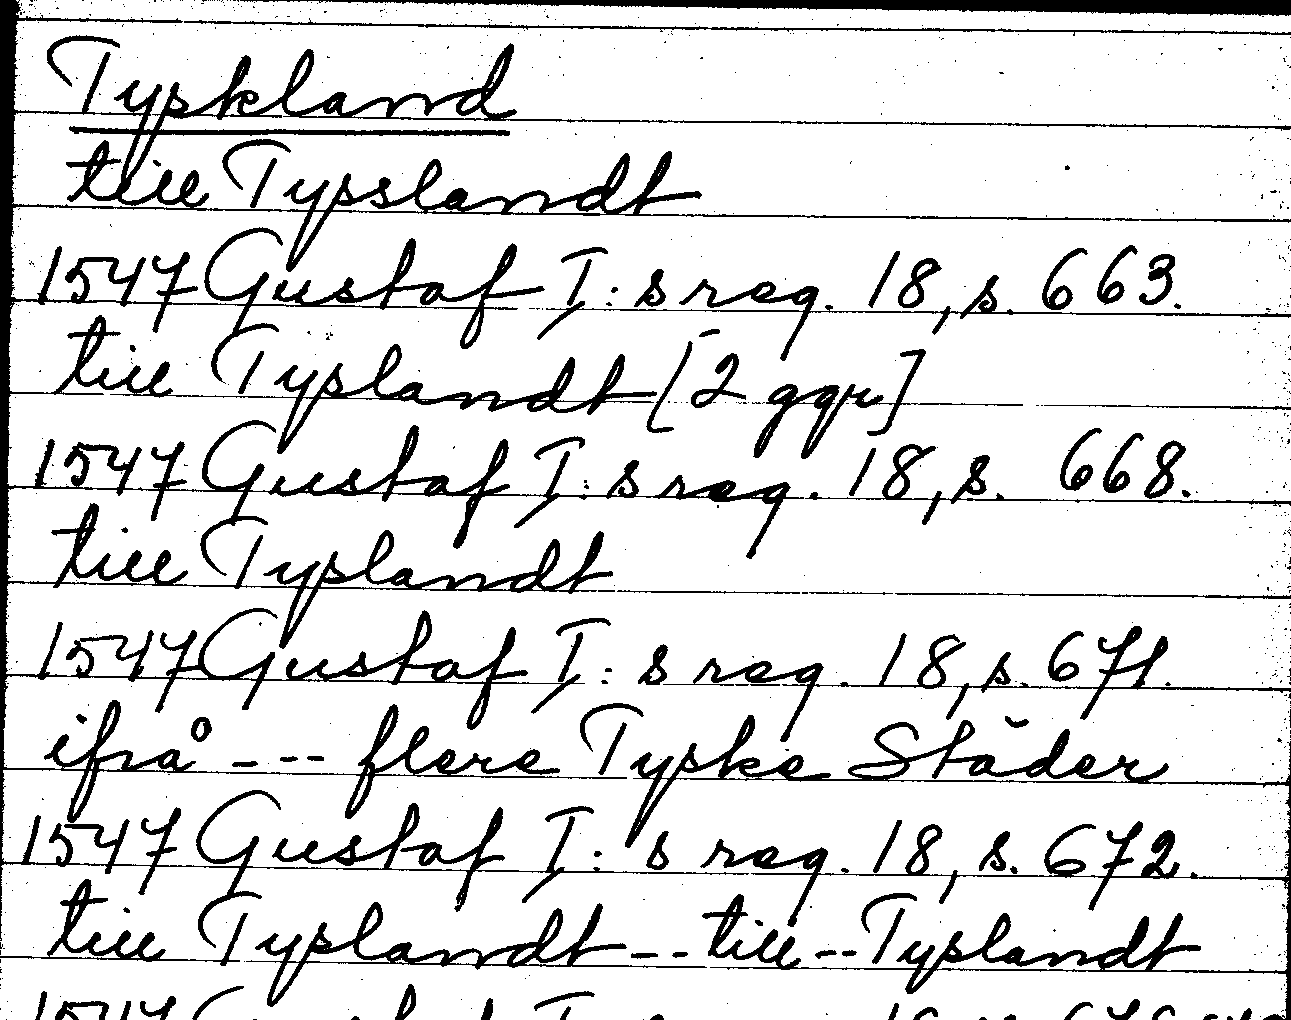 Tyskland
till Tysslandt
1547 Gustaf I:s reg. 18, s. 663.
till Tyslandt [2 ggr]
1547 Gustaf I:s reg. 18, s. 668.
till Tyslandt
1547 Gustaf I:s reg. 18, s. 671.
ifrå --- flere Tyske Städer
1547 Gustaf I:s reg. 18, s. 672.
till Tyslandt -- till -- Tyslandt